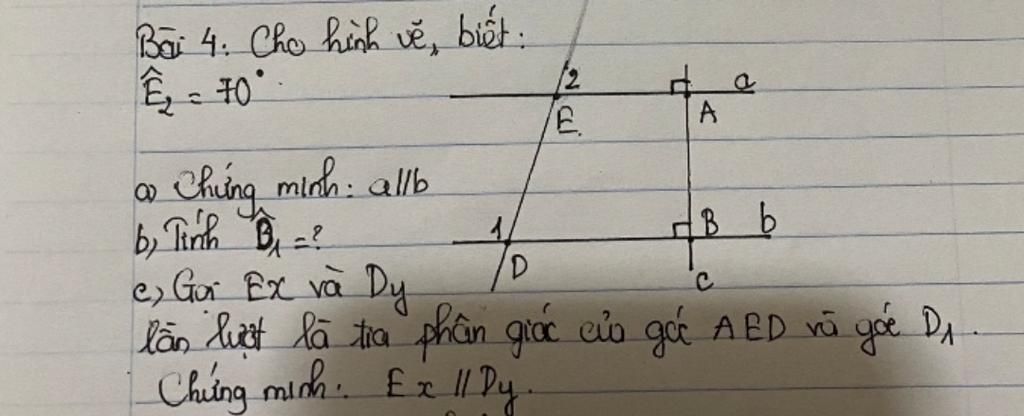 Bài 4: Cho hình vẽ, biết:
Ê₂ = 70°.
2
a
E.
A
a) Chứng minh: a//b
b) Tính D̂₁ = ?
1
B
b
D
c) Gọi Ex và Dy
C
lần lượt là tia phân giác của góc AED và góc D₁.
Chứng minh: Ex // Dy.